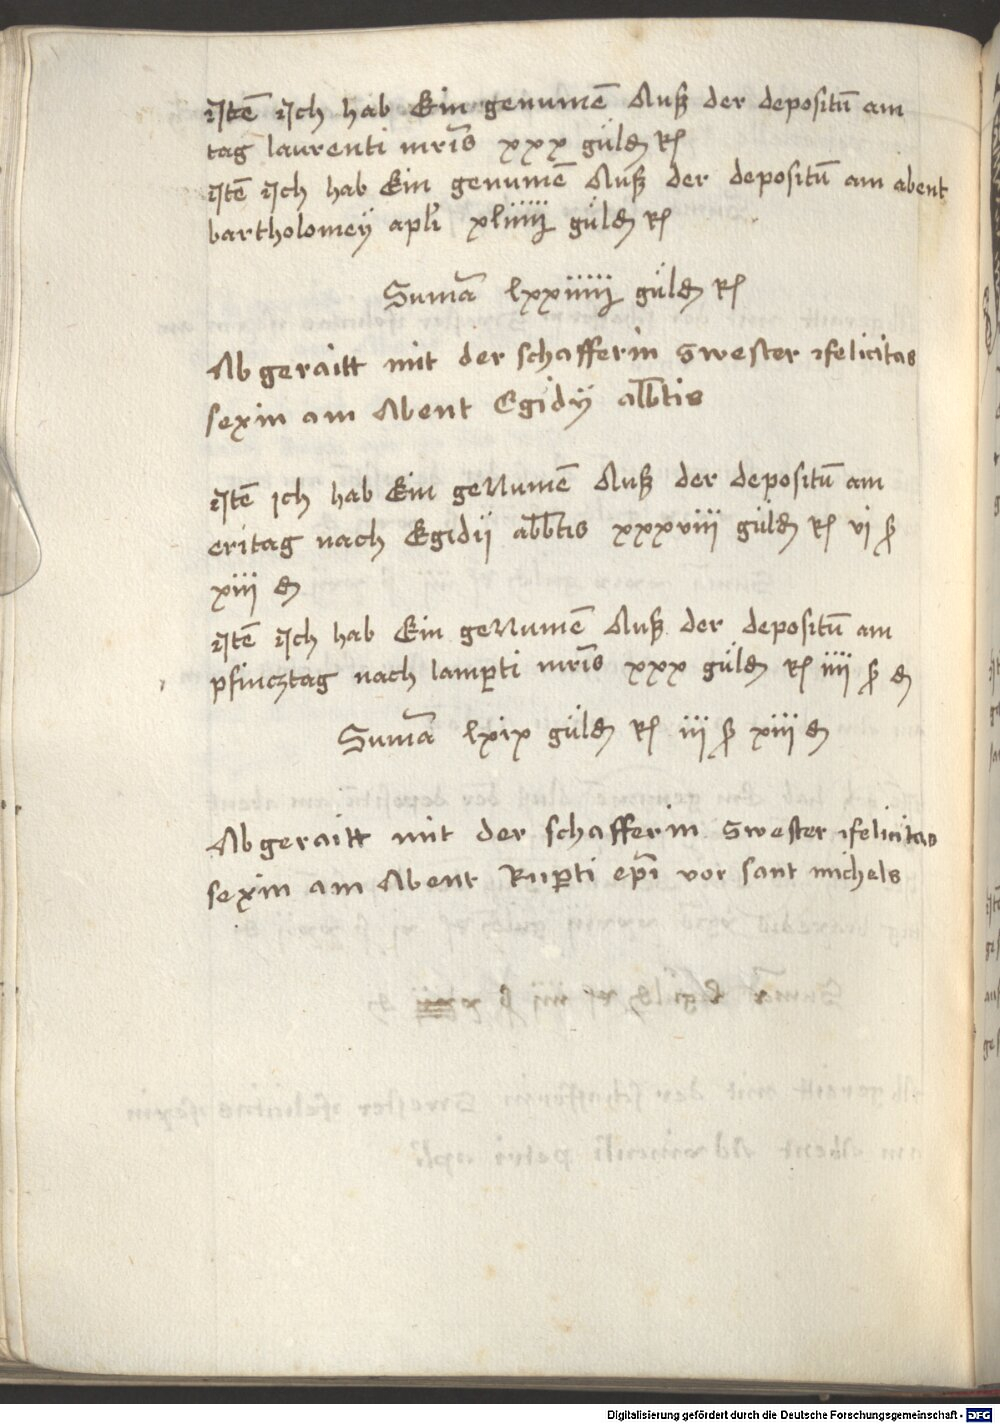 Jtē Jch hab Ein genumē Auß der depositū am
tag laurenti mrīs xxx gũld R
Jtē Jch hab Ein genumē Auß der depositū am abent
bartholomey apłi xliiij gũld R
Sumā lxxiiij gũld R
Abgeraitt mit der schafferin swester felicitas
sexin am Abent Egidy abbtis
Jtē ich hab Ein geNumē Auß der depositū am
eritag nach Egidij abbtis xxxviiii gũld R vi ß
xiii d
Jtē Jch hab Ein geNumē Auß der depositū am
pfincztag nach lamꝑti mrīs xxx gũld R iiii ß d
Sumā lxix gũld R iii ß xiii d
Abgeraitt mit der schafferin swester felicitas
sexin am Abent Ruꝑti epī vor sant michels
Digitalisierung gefördert durch die Deutsche Forschungsgemeinschaft - DFG